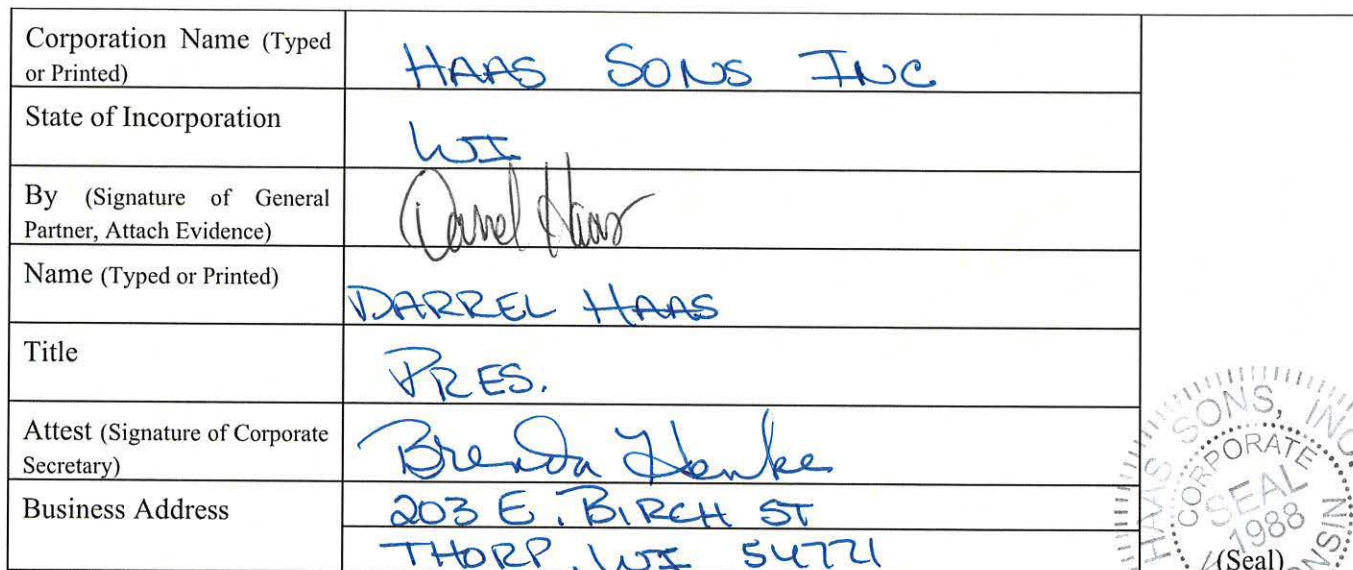 Corporation Name (Typed
or Printed)
HAAS SONS INC
State of Incorporation
WI
By (Signature of General
Partner, Attach Evidence)
Darrel Haas
Name (Typed or Printed)
DARREL HAAS
Title
PRES.
Attest (Signature of Corporate
Secretary)
Brenda Henke
Business Address
203 E. BIRCH ST
THORP, WI 54771
HAAS SONS, INC.
CORPORATE
SEAL
1988
(Seal)